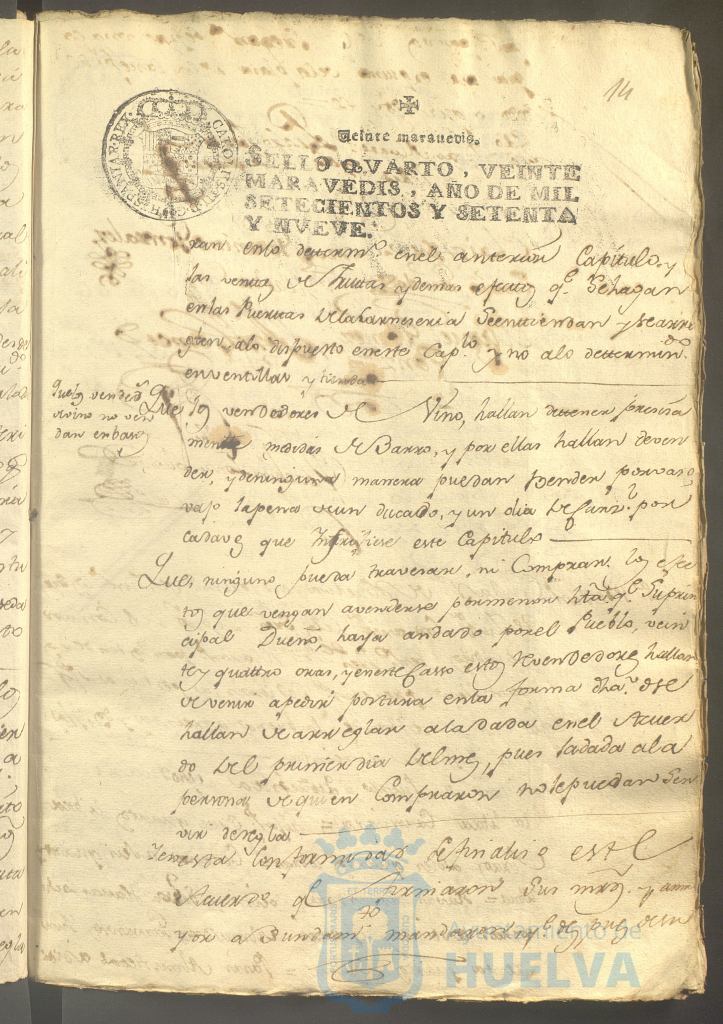 14
Veinte maravedis.
SELLO QVARTO, VEINTE
MARAVEDIS, AÑO DE MIL
SETECIENTOS Y SETENTA
Y NVEVE.
CAROLUS III D G HISPANIAR REX
ran en lo determ.do en el anterior Capitulo, y
las ventas de Fruttas ydemas efectos q.e Sehagan
en las Puertas de la Carneseria Seentiendan y Se arre
glen alo dispuesto en este Cap.lo y no alo determin.do
en ventillas y tiendas
Que los vended.s
de vino no ven
dan en barro
Que los vendedores de Vino, hallan de tener precisa
mente medidas de Barro, y por ellas hallan de ven
der, y de ninguna manera puedan Vender por vaso
vajo la pena de un ducado, y un dia de por
cada vez que este Capitulo
Que, ninguno pueda travesar, ni Comprar los efec
tos que vengan a venderse por menor hta q.e Su prin
cipal Dueño, haya andado por el Pueblo, vein
te y quattro oras, y en este Casso estos Revendedores hallan
de venir a pedir postura en la forma dha. q.e se
hallan de arreglar a la dada en el Acuer
do del primer dia del mes, pues la dada a la
personas de quien Compraron no le puedan Ser
vir de regla
Y en esta Conformidad Se finaliso este
Acuerdo q.e Firmaron Sus mrds. y
yo a Su mandaron
Ayuntamiento de
HUELVA